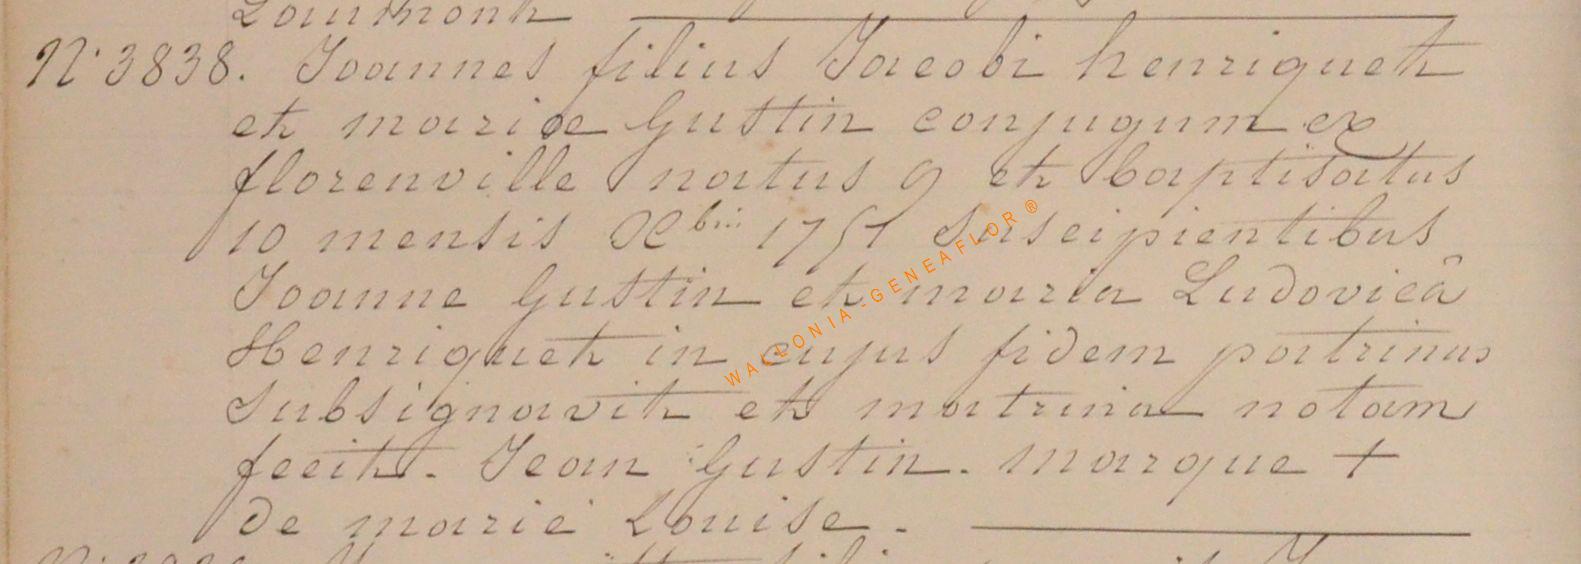 Lourmonh
N° 3838. Joannes filius Jacobi henriquet
et mariæ Gustin conjugum ex
florenville natus 9 et baptisatus
10 mensis Xbris 1751 Suscipientibus
Joanne Gustin et maria Ludovicâ
Henriquet in cujus fidem patrinus
Subsignavit et matrina notam
fecit. Jean Gustin. marque +
de marie Louise.
WALLONIA-GENEAFLOR ®